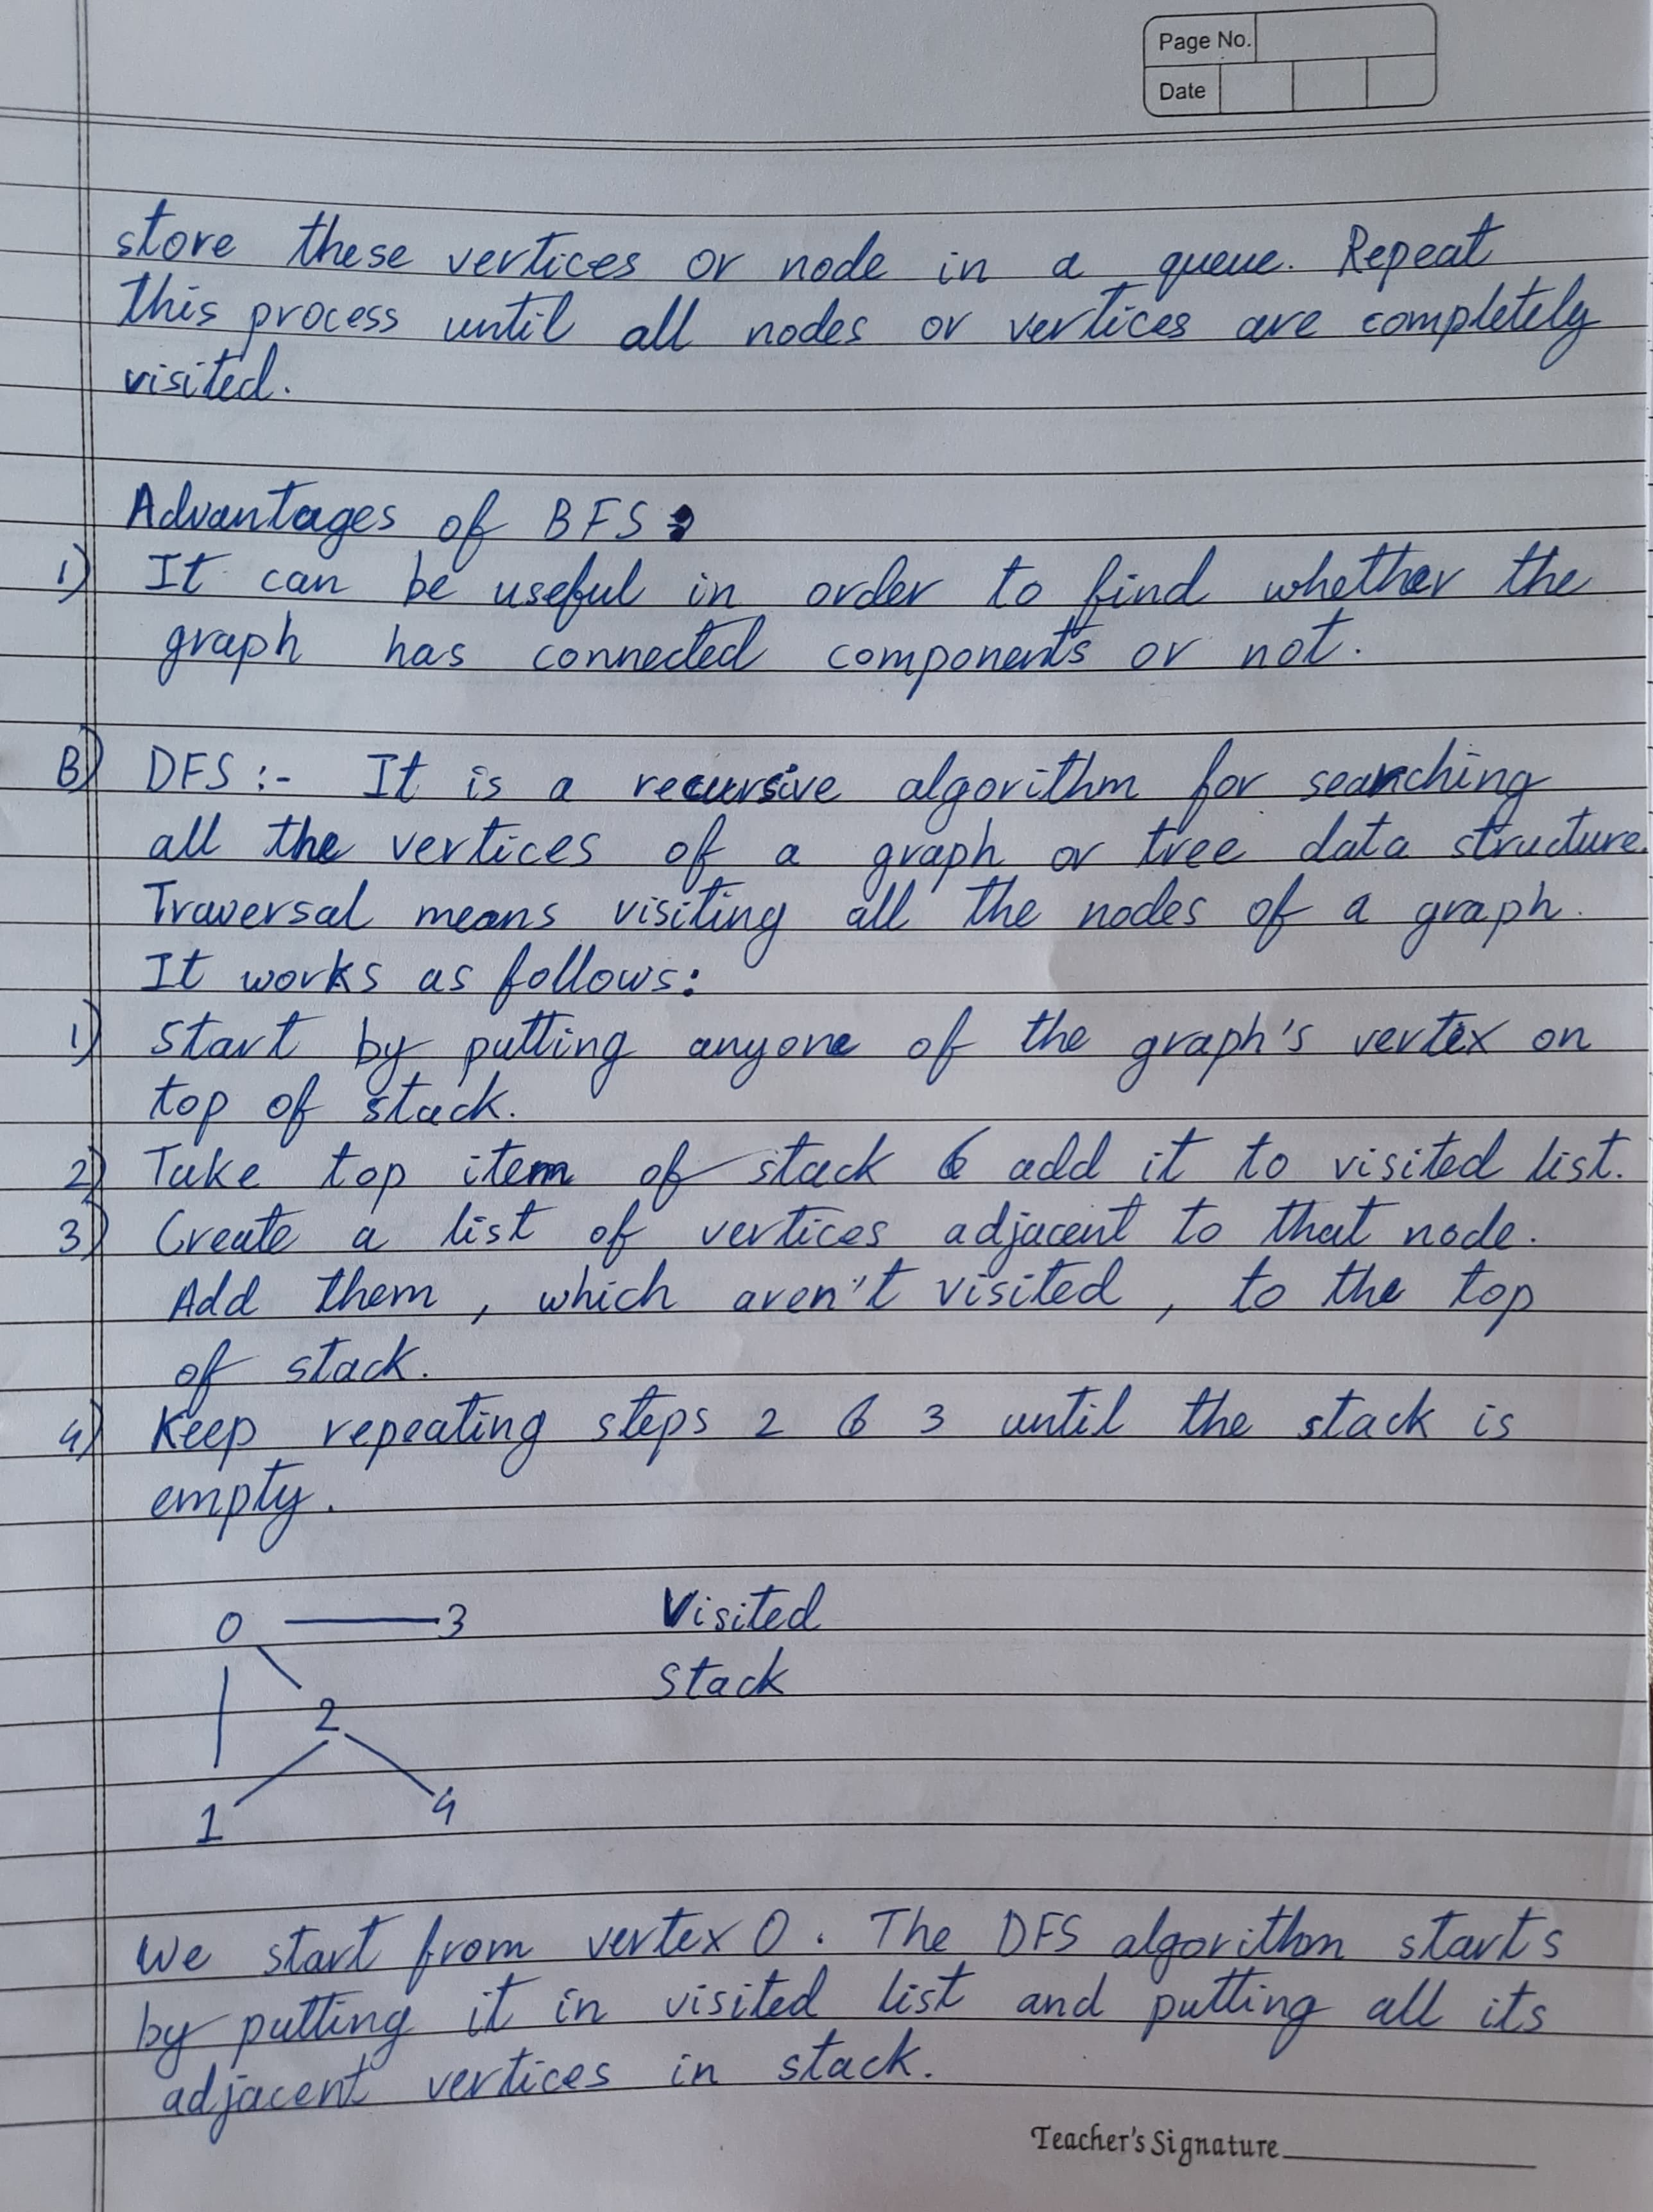 Page No.
Date
store these vertices or node in a queue. Repeat
this process until all nodes or vertices are completely
visited.
Advantages of BFS:
1) It can be useful in order to find whether the
graph has connected components or not.
B) DFS :- It is a recursive algorithm for searching
all the vertices of a graph or tree data structure.
Traversal means visiting all the nodes of a graph.
It works as follows:
1) Start by putting anyone of the graph's vertex on
top of stack.
2) Take top item of stack & add it to visited list.
3) Create a list of vertices adjacent to that node.
Add them, which aren't visited, to the top
of stack.
4) Keep repeating steps 2 & 3 until the stack is
empty.
0 3 Visited
Stack
2
1 4
We start from vertex 0. The DFS algorithm starts
by putting it in visited list and putting all its
adjacent vertices in stack.
Teacher's Signature